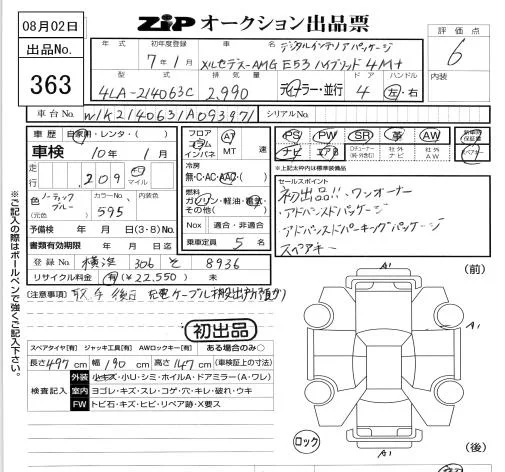 08月02日
ZiP オークション出品票
出品No.
363
評価点
6
内装
年式 初年度登録 車名
7年1月 デジタルインテリアパッケージ
メルセデス-AMG E53 ハイブリッド 4M+
型式 排気量 ドア ハンドル
4LA-214063C 2,990 ディーラー・並行 4 左・右
車台No. W1K2140631A093971 シリアルNo.
車歴 自家用・レンタ・( )
車検 10年1月
走行 209 km マイル
色 ノーティックブルー カラーNo. 595 内装色
(元色)
予備検 年 月 日(3・8)No.
書類有効期限 年 月 日迄
登録No. 横浜 306 そ 8936
リサイクル料金 有(¥22,550) 未
フロア コラム インパネ AT MT 速
冷房
無・C・AC・AAC・( )
燃料
ガソリン・軽油・電気・その他( )
Nox 適合・非適合
乗車定員 5 名
PS PW SR 革 AW 新車時保証書
ナビ エアB Dチューナー 社外ナビ 社外AW スペアキー
※上記太枠内は標準装備品
セールスポイント
初出品!!、ワンオーナー
・アドバンスドパッケージ
・アドバンスドパーキングパッケージ
スペアキー
(注意事項) 取, 4 後送 充電ケーブル
初出品
スペアタイヤ[有] ジャッキ工具[有] AWロックキー[有] ある場合のみ○
長さ497cm 幅190cm 高さ147cm (車検証上の寸法)
検査記入
外装 小キズ・小U・シミ・ホイルA・ドアミラー(A・ワレ)
室内 ヨゴレ・キズ・スレ・コゲ・穴・キレ・破れ・ウキ
FW トビ石・キズ・ヒビ・リペア跡・X要ス
※ご記入の際はボールペンで強くご記入下さい。
A1
(前)
A1
ロック
A1
(後)